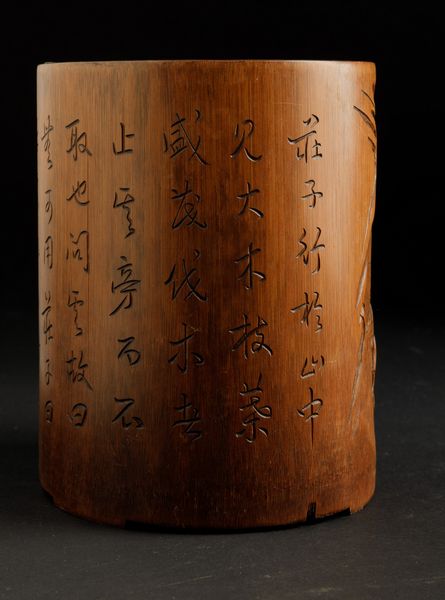 莊子行於山中
見大木枝葉
盛茂伐木者
止其旁而不
取也問其故曰
可用莊子曰